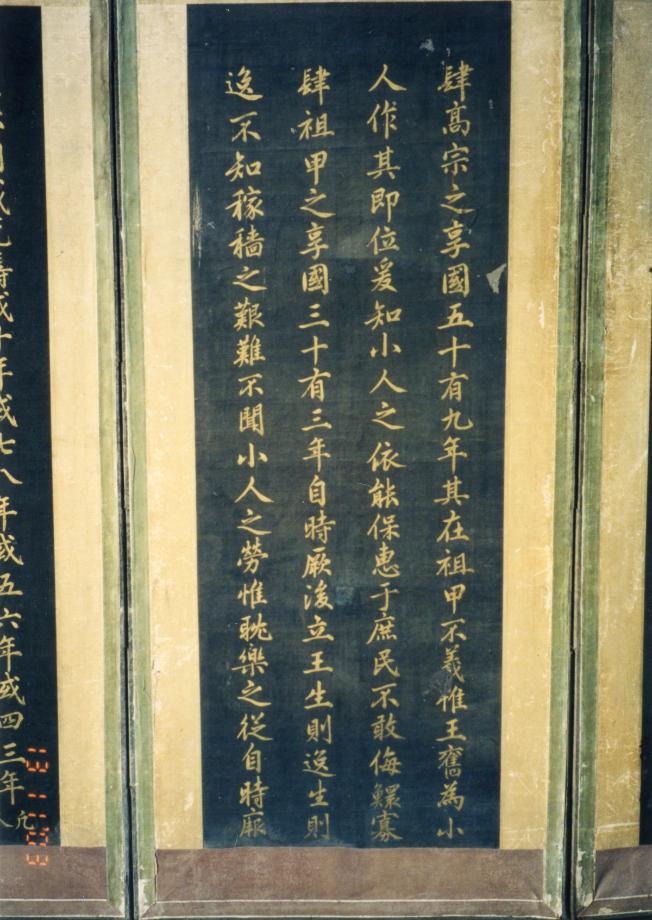 肆高宗之享國五十有九年其在祖甲不義惟王舊為小
人作其即位爰知小人之依能保惠于庶民不敢侮鰥寡
肆祖甲之享國三十有三年自時厥後立王生則逸生則
逸不知稼穡之艱難不聞小人之勞惟耽樂之從自時厥
罔或克壽或十年或七八年或五六年或四三年